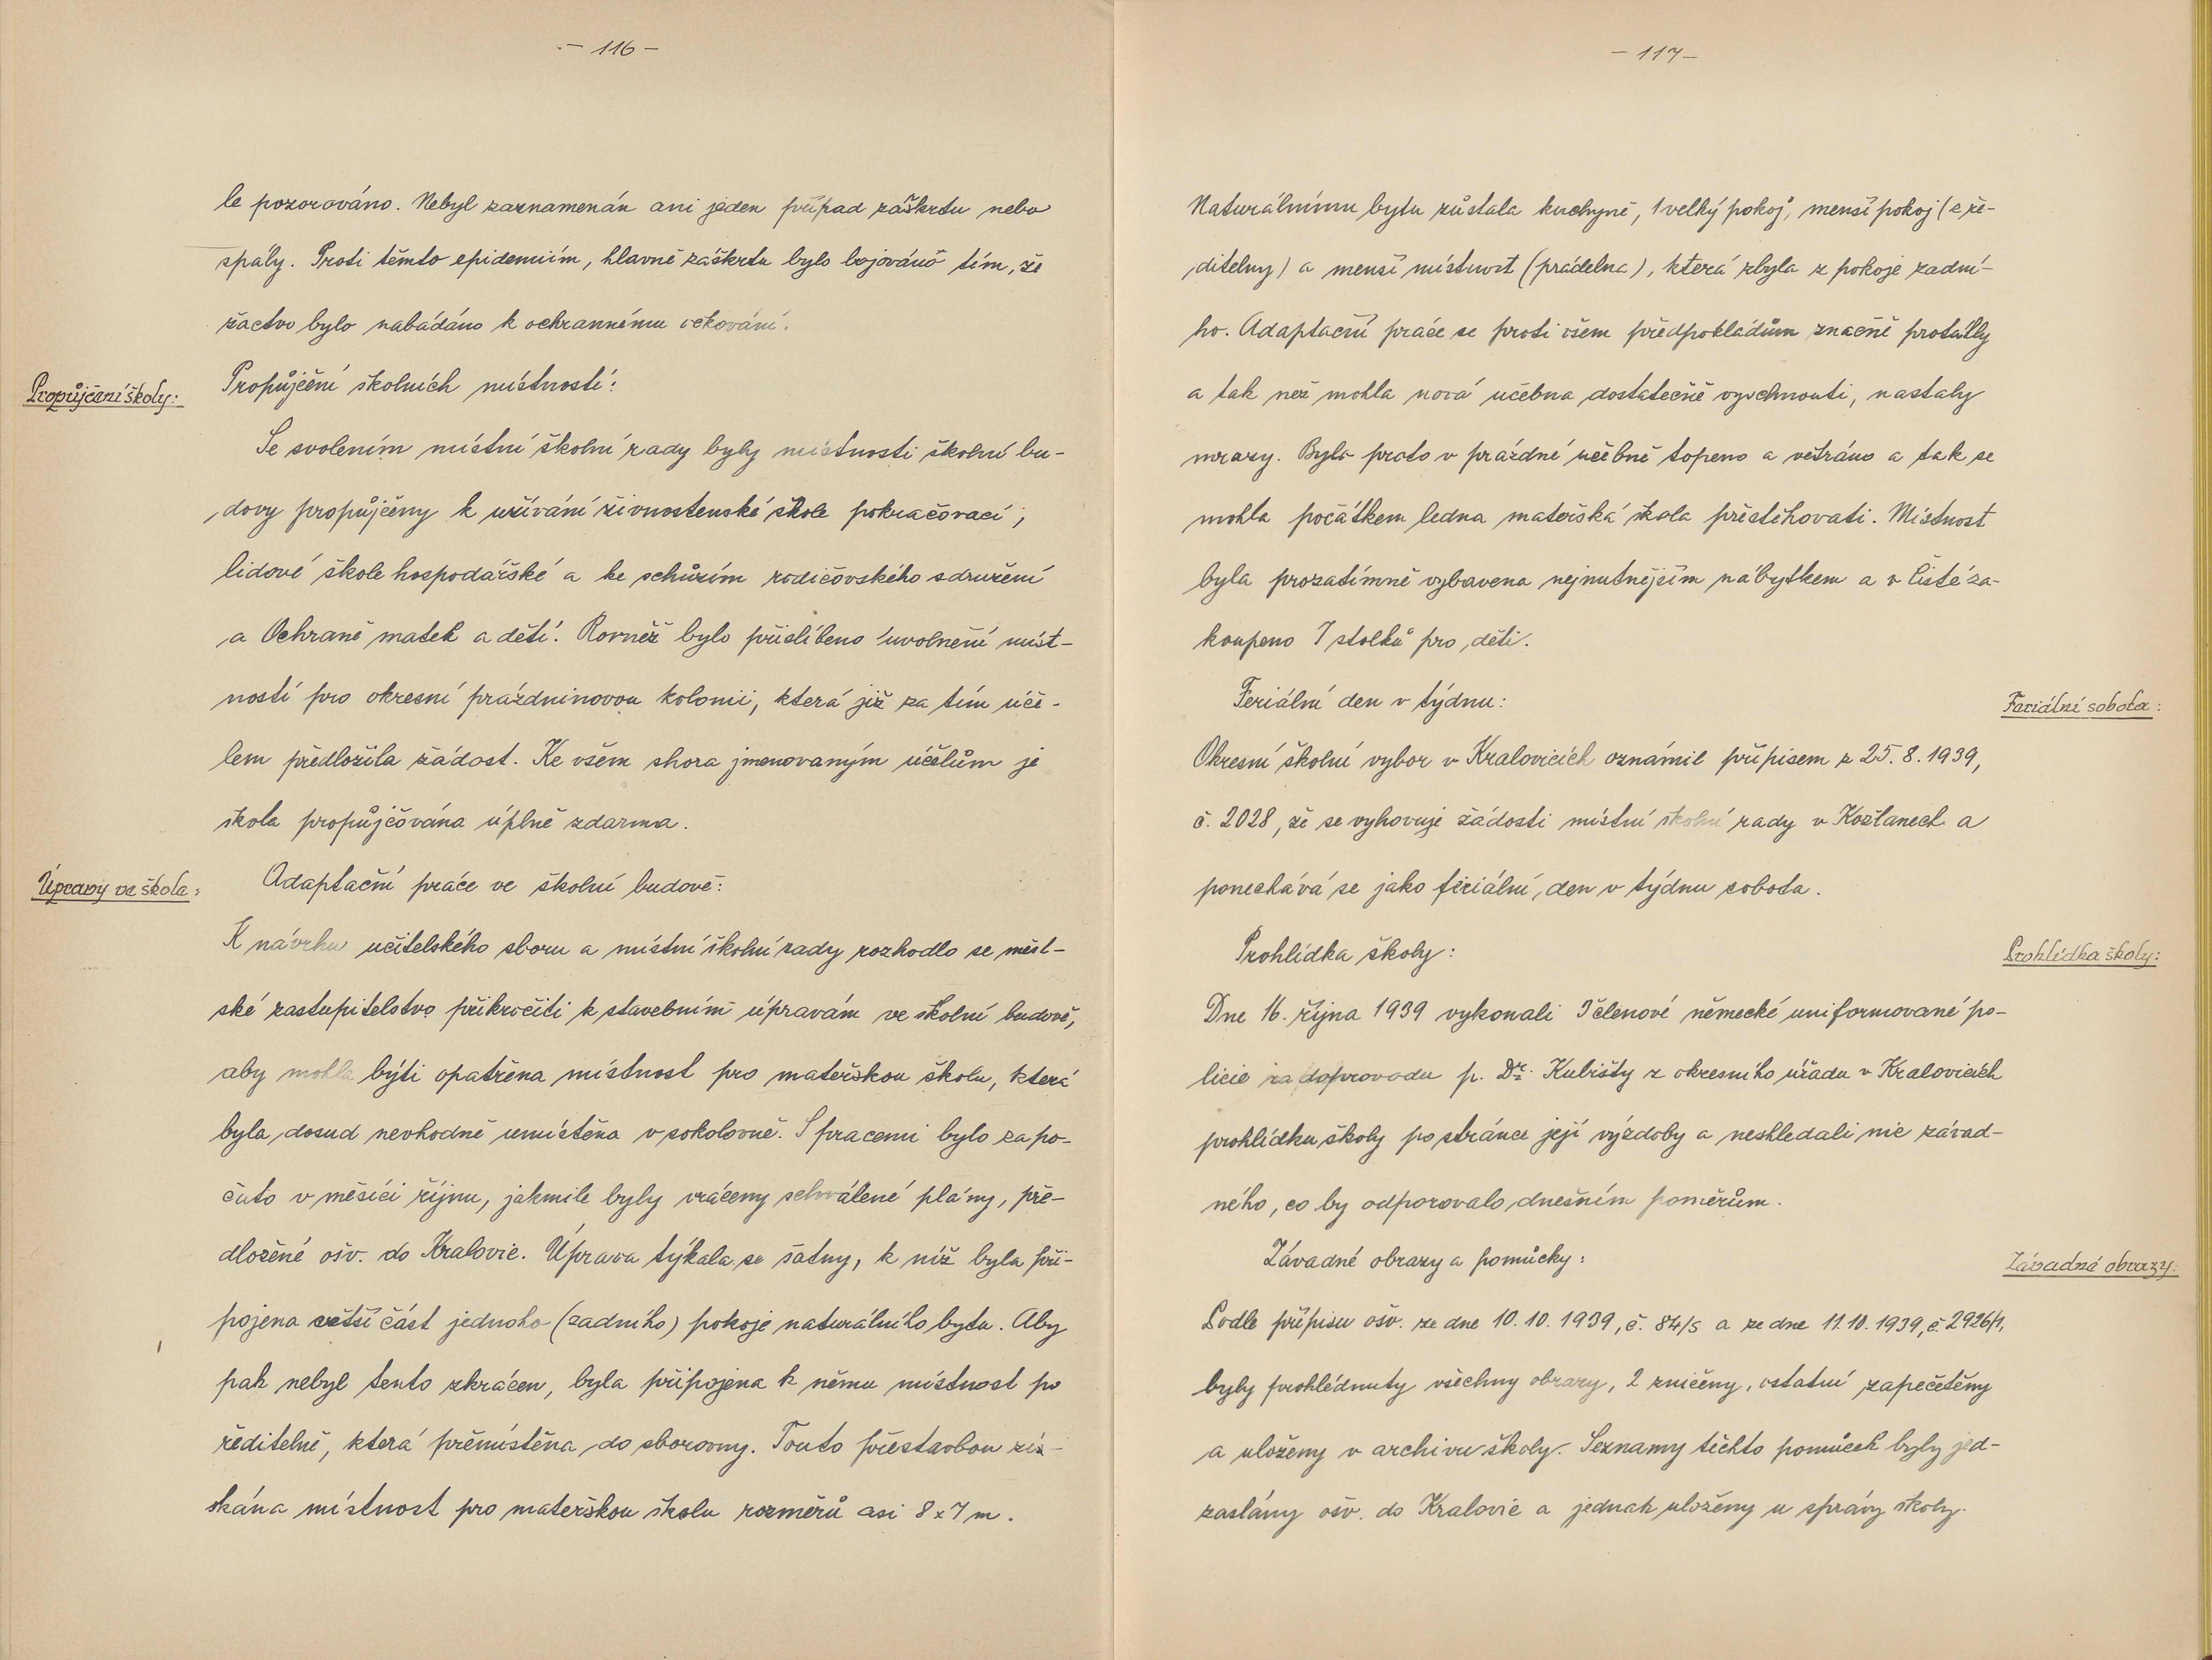 — 116 —
le pozorováno. Nebyl zaznamenán ani jeden případ záškrtu nebo
spály. Proti těmto epidemiím, hlavně záškrtu bylo bojováno tím, že
žactvo bylo nabádáno k ochrannému očkování.
Propůjčení školy:
Propůjčení školních místností:
Se svolením místní školní rady byly místnosti školní bu-
dovy propůjčeny k užívání živnostenské škole pokračovací,
lidové škole hospodářské a ke schůzím rodičovského sdružení
a Ochraně matek a dětí. Rovněž bylo přislíbeno uvolnění míst-
ností pro okresní prázdninovou kolonii, která již za tím úče-
lem předložila žádost. Ke všem shora jmenovaným účelům je
škola propůjčována úplně zdarma.
Úpravy ve škole:
Adaptační práce ve školní budově:
K návrhu učitelského sboru a místní školní rady rozhodlo se měst-
ské zastupitelstvo přikročiti k stavebním úpravám ve školní budově,
aby mohla býti opatřena místnost pro mateřskou školu, která
byla dosud nevhodně umístěna v sokolovně. S pracemi bylo zapo-
čato v měsíci říjnu, jakmile byly vráceny schválené plány, pře-
dložené ošv. do Kralovic. Úprava týkala se šatny, k níž byla při-
pojena větší část jednoho (zadního) pokoje naturálního bytu. Aby
pak nebyl tento zkrácen, byla připojena k němu místnost po
ředitelně, která přemístěna do sborovny. Touto přestavbou zís-
skána místnost pro mateřskou školu rozměrů asi 8 x 7 m.
— 117 —
Naturálnímu bytu zůstala kuchyně, 1 velký pokoj, menší pokoj (z ře-
ditelny) a menší místnost (prádelna), která zbyla z pokoje zadní-
ho. Adaptační práce se proti všem předpokládům značně protáhly
a tak než mohla nová učebna dostatečně vyschnouti, nastaly
mrazy. Bylo proto v prázdné učebně topeno a větráno a tak se
mohla počátkem ledna mateřská škola přestěhovati. Místnost
byla prozatímně vybavena nejnutnějším nábytkem a v Čisté za-
koupeno 7 stolků pro děti.
Feriální den v týdnu:
Feriální sobota:
Okresní školní výbor v Kralovicích oznámil přípisem z 25. 8. 1939,
č. 2028, že se vyhovuje žádosti místní školní rady v Kožlanech a
ponechává se jako feriální den v týdnu sobota.
Prohlídka školy:
Prohlídka školy:
Dne 16. října 1939 vykonali 3 členové německé uniformované po-
licie za doprovodu p. Dr. Kubišty z okresního úřadu v Kralovicích
prohlídku školy po stránce její výzdoby a neshledali nic závad-
ného, co by odporovalo dnešním poměrům.
Závadné obrazy a pomůcky:
Závadné obrazy:
Podle přípisu ošv. ze dne 10. 10. 1939, č. 84/5 a ze dne 11. 10. 1939, č. 2926/1,
byly prohlédnuty všechny obrazy, 2 zničeny, ostatní zapečetěny
a uloženy v archivu školy. Seznamy těchto pomůcek byly jed-
zaslány ošv. do Kralovic a jednak uloženy u správy školy.